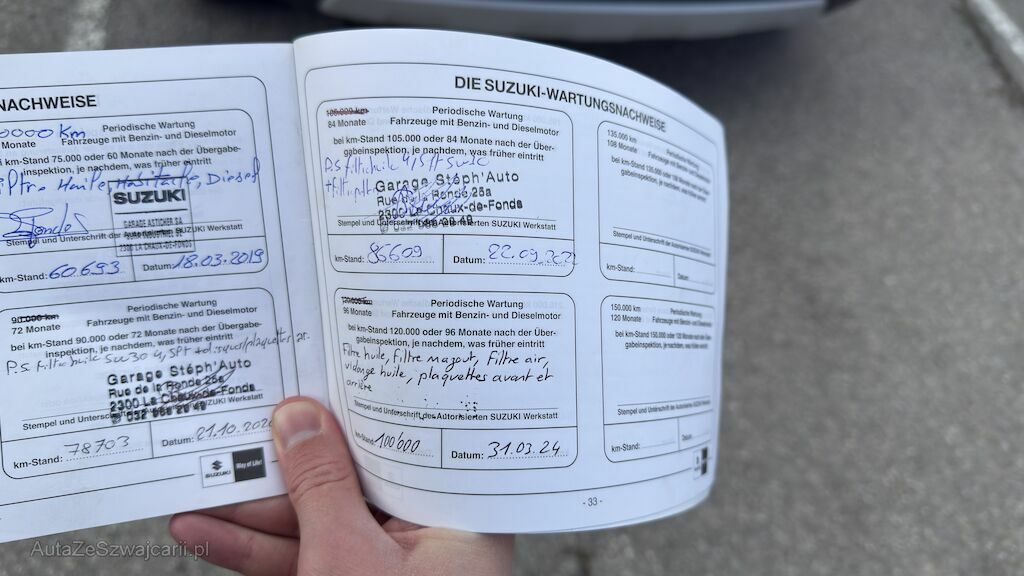 NACHWEISE
0000 Km
Periodische Wartung
Monate
Fahrzeuge mit Benzin- und Dieselmotor
i km-Stand 75.000 oder 60 Monate nach der Übergabe-
inspektion, je nachdem, was früher eintritt
iltre Huile, Habitacle, Diesel
SUZUKI
GARAGE ASTICHER SA
2300 LA CHAUX-DE-FONDS
Stempel und Unterschrift der Autorisierten SUZUKI Werkstatt
km-Stand: 60.693 Datum: 18.03.2019
90.000 km
Periodische Wartung
72 Monate
Fahrzeuge mit Benzin- und Dieselmotor
bei km-Stand 90.000 oder 72 Monate nach der Übergabe-
inspektion, je nachdem, was früher eintritt
P.S filtre huile 5W30 4,5Pt
Garage Stéph'Auto
Rue de la Ronde 25a
2300 La Chaux-de-Fonds
Stempel und Unterschrift der Autorisierten SUZUKI Werkstatt
km-Stand: 78703 Datum: 21.10.202
SUZUKI Way of Life!
DIE SUZUKI-WARTUNGSNACHWEISE
105.000 km
Periodische Wartung
84 Monate
Fahrzeuge mit Benzin- und Dieselmotor
bei km-Stand 105.000 oder 84 Monate nach der Über-
gabeinspektion, je nachdem, was früher eintritt
P.S filtre huile 4,5Pt 5W30
Garage Stéph'Auto
Rue de la Ronde 25a
2300 La Chaux-de-Fonds
Stempel und Unterschrift der Autorisierten SUZUKI Werkstatt
km-Stand: 86609 Datum: 22.09.202
120.000 km
Periodische Wartung
96 Monate
Fahrzeuge mit Benzin- und Dieselmotor
bei km-Stand 120.000 oder 96 Monate nach der Über-
gabeinspektion, je nachdem, was früher eintritt
Filtre huile, filtre mazout, Filtre air,
vidange huile, plaquettes avant et
arrière
Stempel und Unterschrift des Autorisierten SUZUKI Werkstatt
km-Stand: 100'000 Datum: 31.03.24
135.000 km
Periodische Wartung
108 Monate
Fahrzeuge mit Benzin- und Dieselmotor
bei km-Stand 135.000 oder 108 Monate nach der Über-
gabeinspektion, je nachdem, was früher eintritt
Stempel und Unterschrift der Autorisierten SUZUKI Werkstatt
km-Stand: Datum:
150.000 km
Periodische Wartung
120 Monate
Fahrzeuge mit Benzin- und Dieselmotor
bei km-Stand 150.000 oder 120 Monate nach der Über-
gabeinspektion, je nachdem, was früher eintritt
Stempel und Unterschrift der Autorisierten SUZUKI Werkstatt
km-Stand: Datum:
SUZUKI
- 33 -
AutaZeSzwajcarii.pl